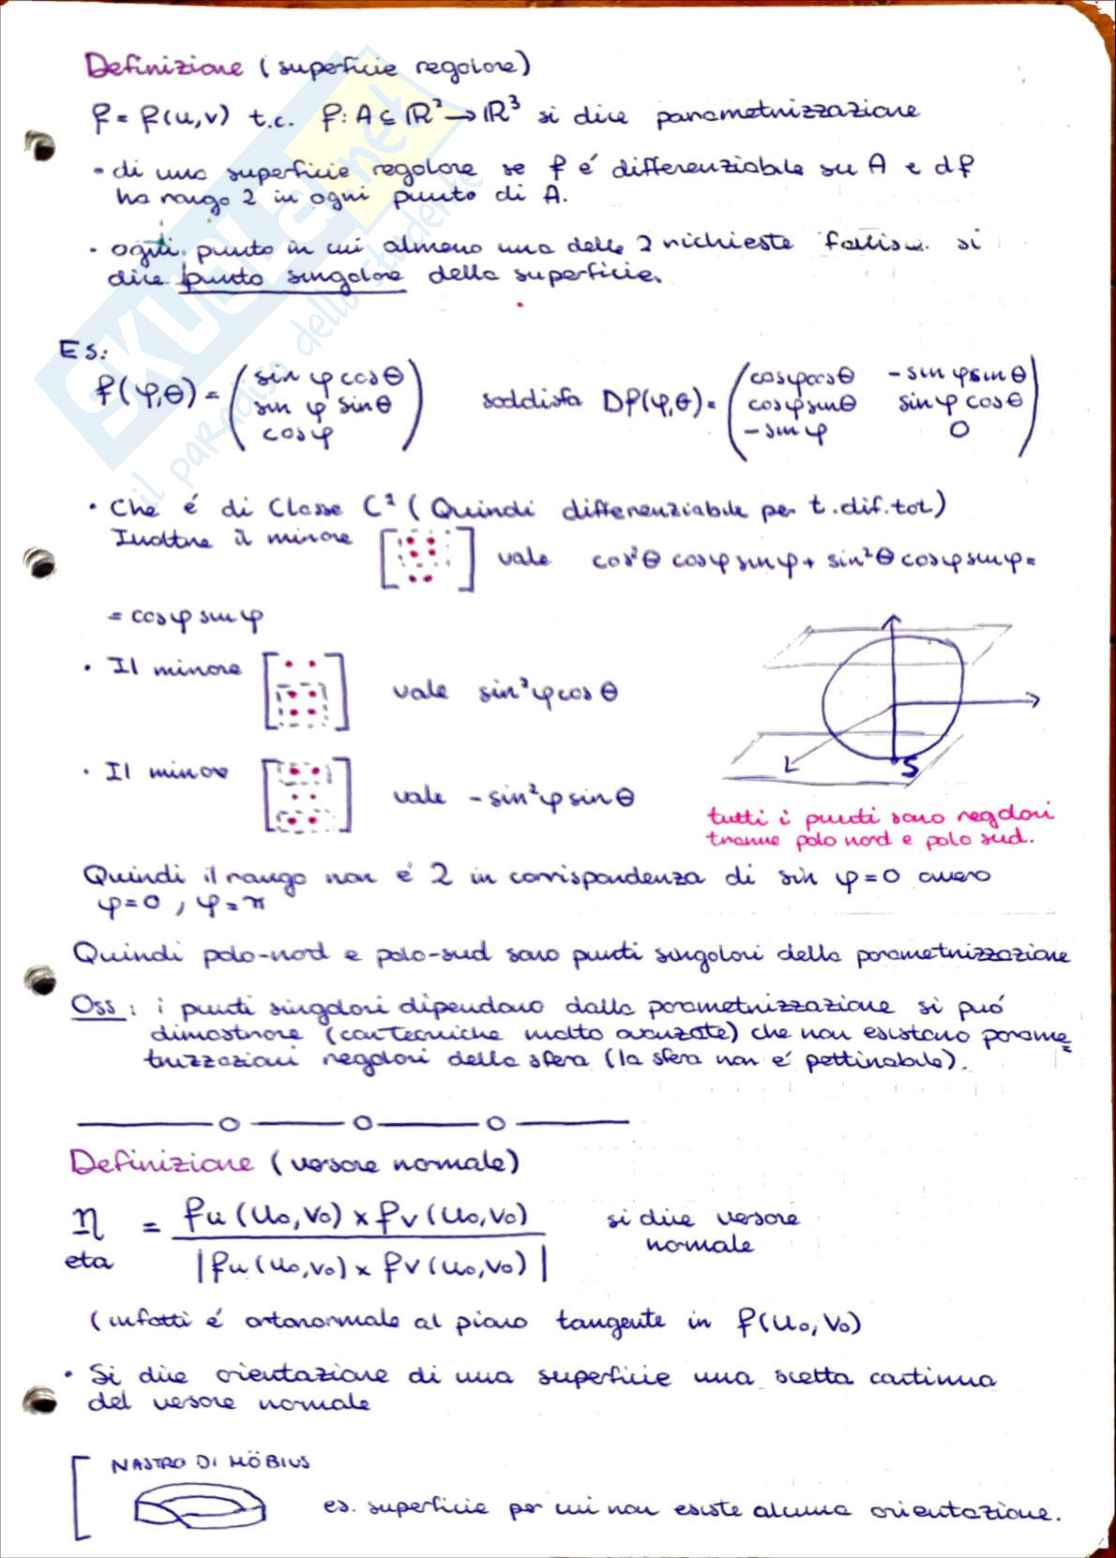 Definizione (superficie regolare)
f = f(u,v) t.c. f: A ⊆ ℝ² → ℝ³ si dice parametrizzazione
- di una superficie regolare se f é differenziabile su A e df
ha rango 2 in ogni punto di A.
• ogni punto in cui almeno una delle 2 richieste fallisce si
dice punto singolare della superficie.
Es:
f(φ,θ) = ( sin φ cos θ
sin φ sin θ
cos φ )
soddisfa Df(φ,θ) = ( cosφcosθ -sin φ sin θ
cosφsinθ sinφ cosθ
-sin φ 0 )
• Che é di Classe C¹ (Quindi differenziabile per t.dif.tot)
Inoltre il minore [ ] vale cos²θ cosφ sinφ + sin²θ cosφ sinφ =
= cosφ sinφ
• Il minore [ ] vale sin²φ cosθ
• Il minore [ ] vale -sin²φ sinθ
S
tutti i punti sono regolari
tranne polo nord e polo sud.
Quindi il rango non é 2 in corrispondenza di sin φ=0 ovvero
φ=0, φ=π
Quindi polo-nord e polo-sud sono punti singolari della parametrizzazione
Oss: i punti singolari dipendono dalla parametrizzazione si puó
dimostrare (con tecniche molto avanzate) che non esistono parame=
trizzazioni regolari della sfera (la sfera non é pettinabile).
Definizione (versore normale)
η = fu(u₀,v₀) × fv(u₀,v₀) / |fu(u₀,v₀) × fv(u₀,v₀)| si dice versore
eta normale
(infatti é ortonormale al piano tangente in f(u₀,v₀)
• Si dice orientazione di una superficie una scelta continua
del versore normale
NASTRO DI MÖBIUS
es. superficie per cui non esiste alcuna orientazione.
SKUOLA.net
il paradiso dello studente